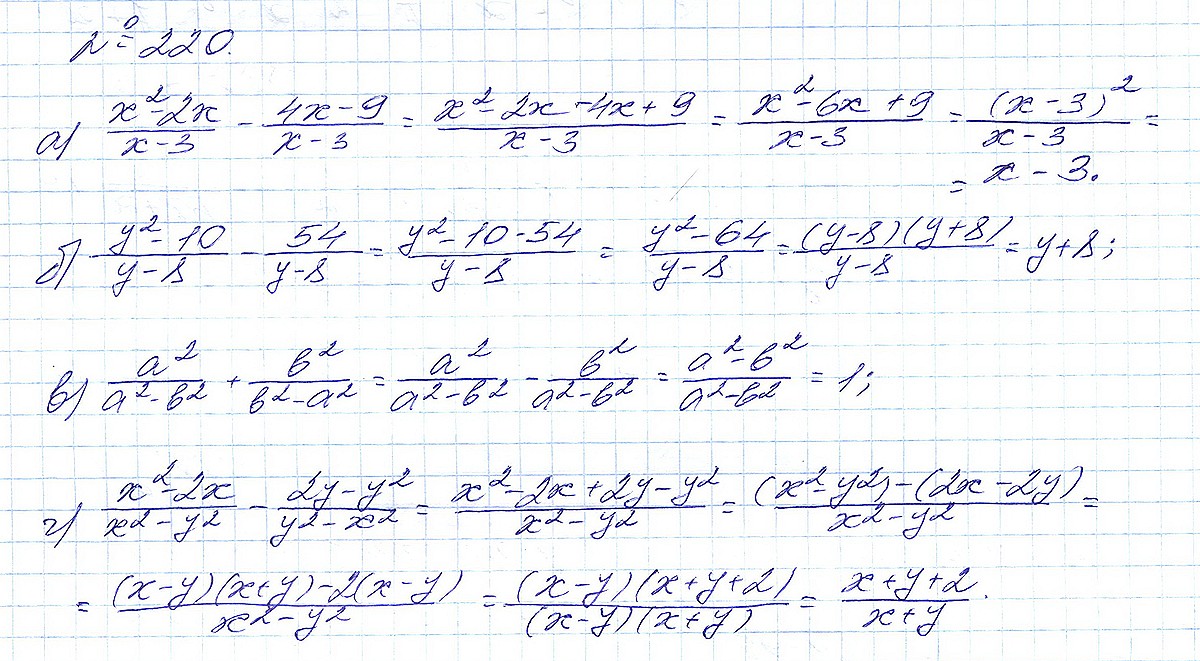 № 220.
а) (x² - 2x)/(x - 3) - (4x - 9)/(x - 3) = (x² - 2x - 4x + 9)/(x - 3) = (x² - 6x + 9)/(x - 3) = (x - 3)²/(x - 3) =
= x - 3.
б) (y² - 10)/(y - 8) - 54/(y - 8) = (y² - 10 - 54)/(y - 8) = (y² - 64)/(y - 8) = (y - 8)(y + 8)/(y - 8) = y + 8;
в) a²/(a² - b²) + b²/(b² - a²) = a²/(a² - b²) - b²/(a² - b²) = (a² - b²)/(a² - b²) = 1;
г) (x² - 2x)/(x² - y²) - (2y - y²)/(y² - x²) = (x² - 2x + 2y - y²)/(x² - y²) = ((x² - y²) - (2x - 2y))/(x² - y²) =
= ((x - y)(x + y) - 2(x - y))/(x² - y²) = (x - y)(x + y + 2)/((x - y)(x + y)) = (x + y + 2)/(x + y).